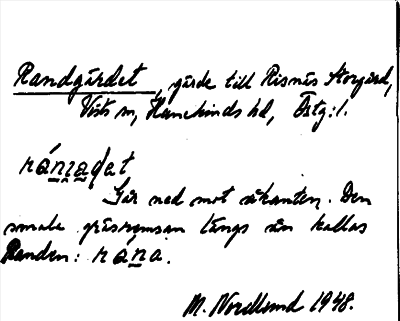 Randgärdet, gärde till Risnäs Storgård,
Vists sn, Hanekinds hd, Östg:l.
ránjaḍet
Går ned mot åkanten. Den
smala gräsremsan längs ån kallas
Randen: rána.
M. Nordlund 1948.